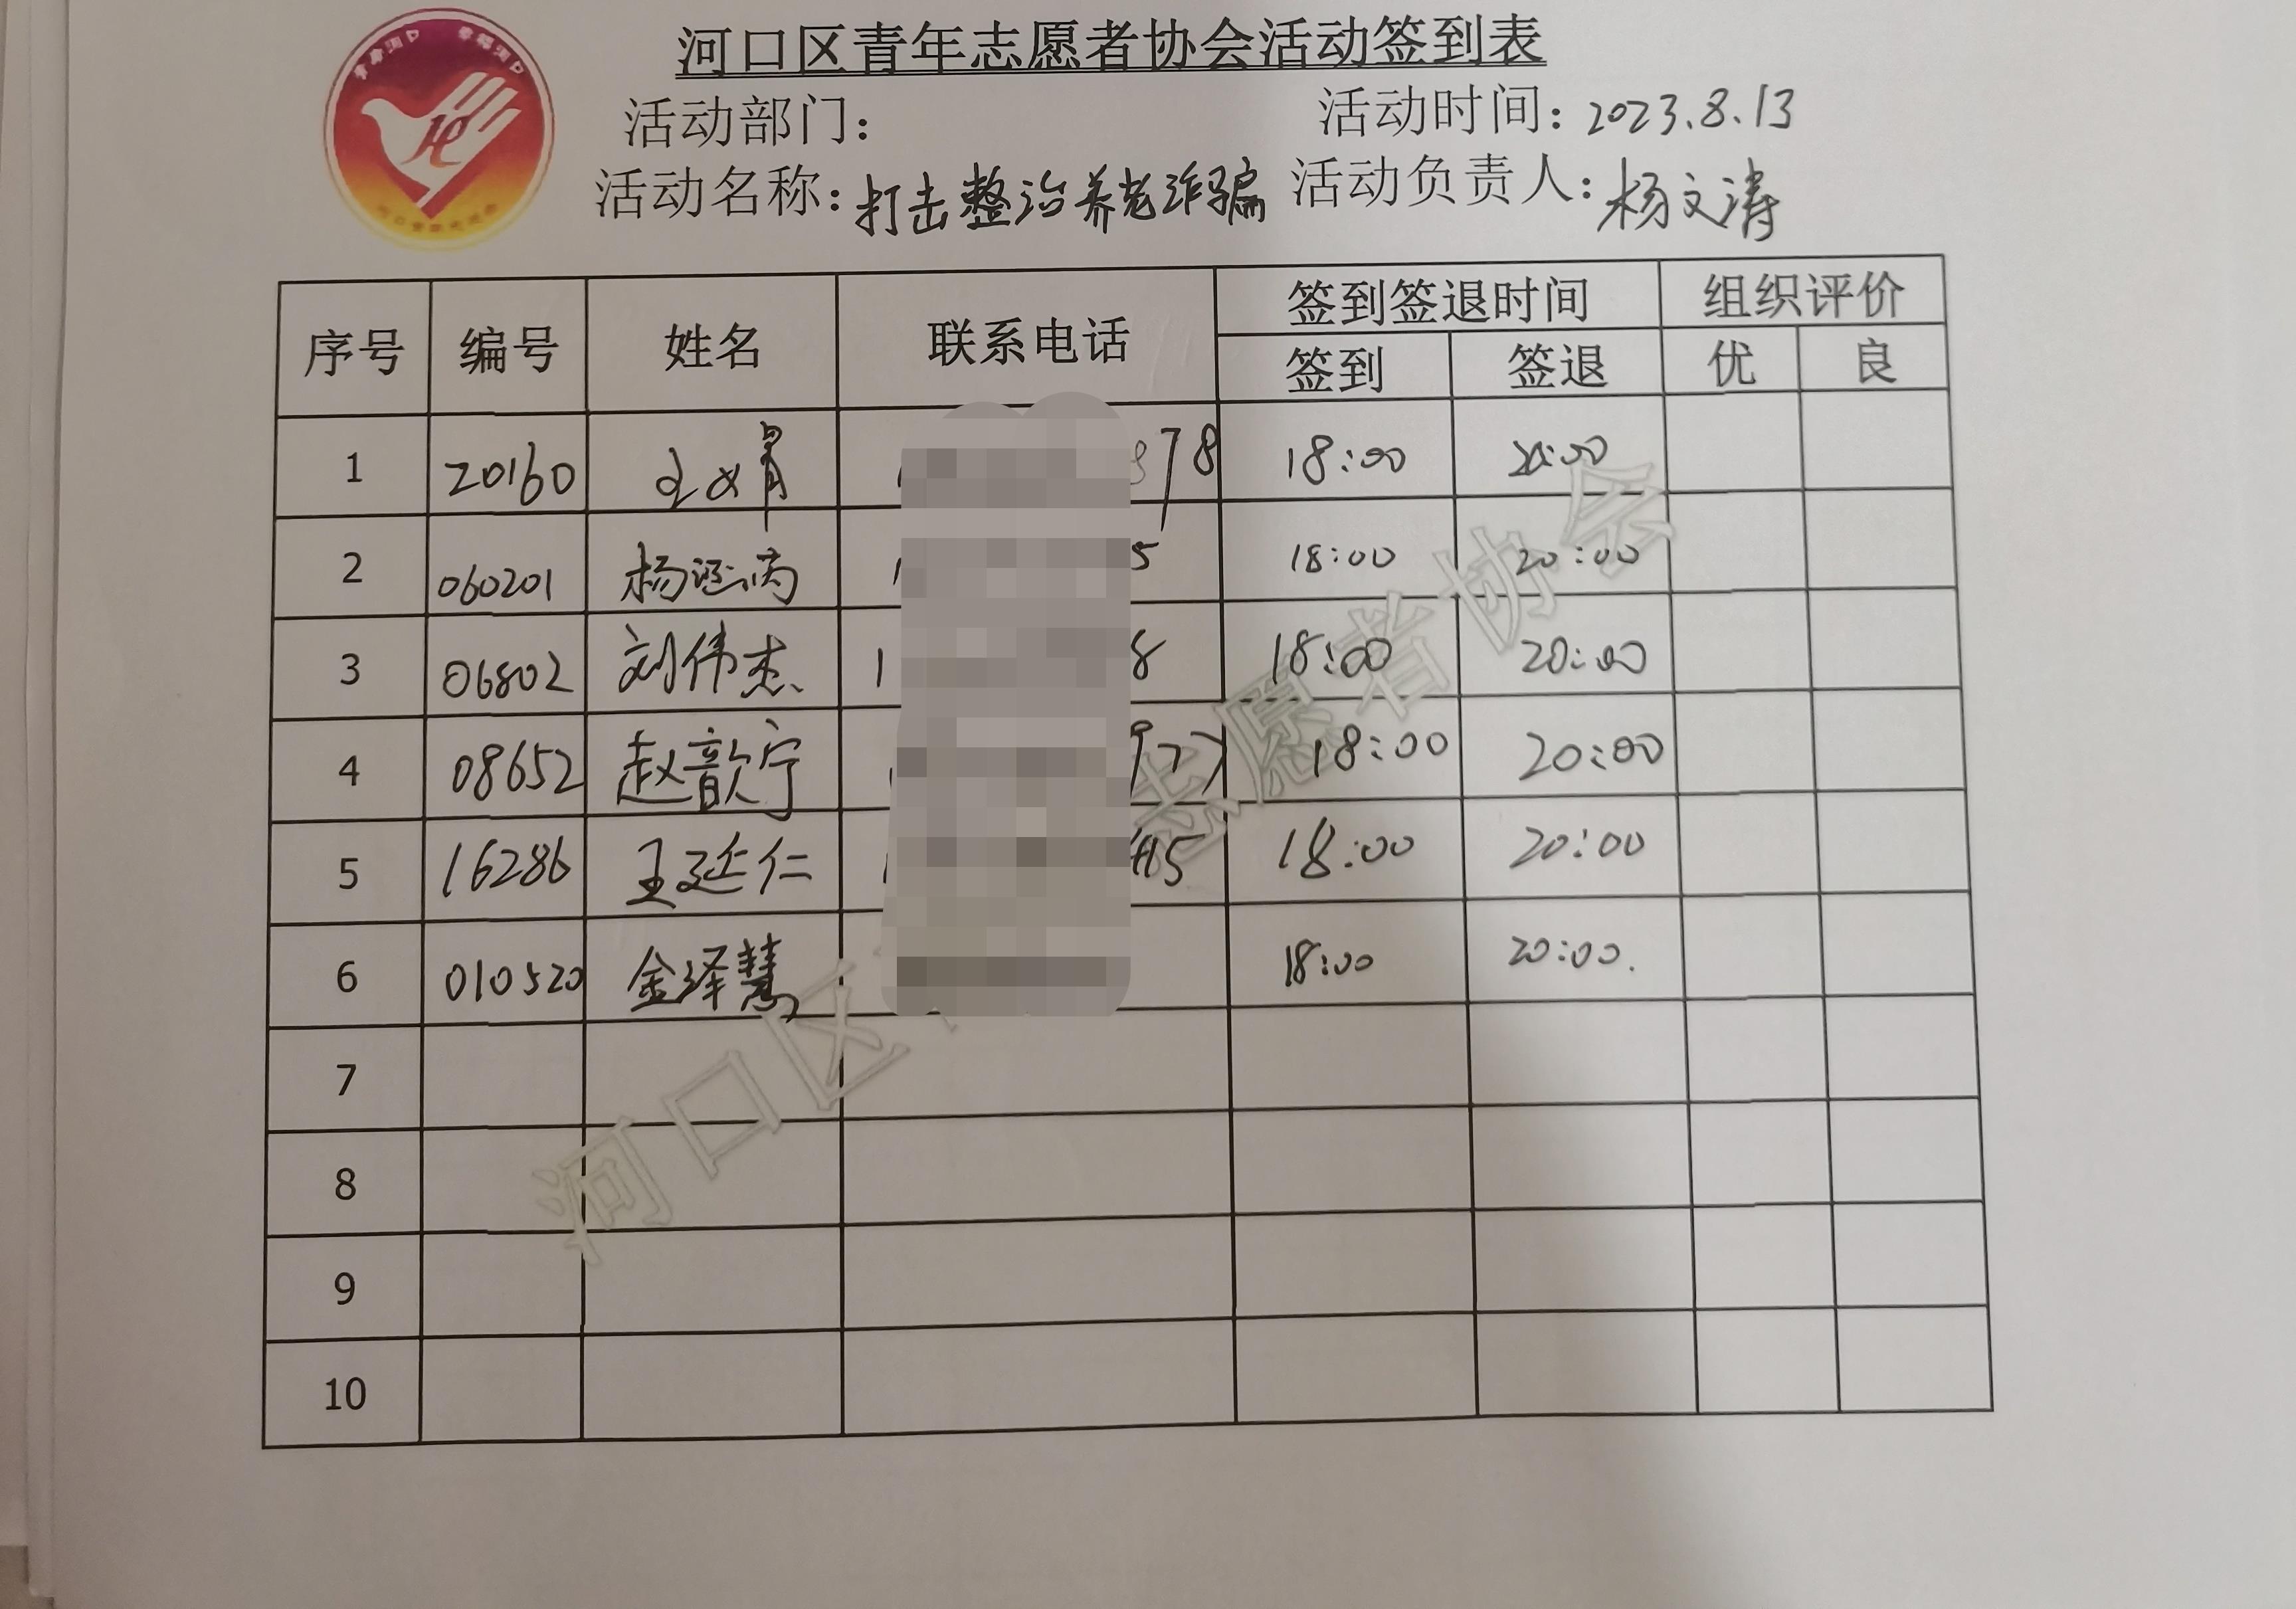 河口区青年志愿者协会活动签到表
活动部门：
活动时间：2023.8.13
活动名称：打击整治养老诈骗
活动负责人：杨文涛
序号 编号 姓名 联系电话 签到签退时间 组织评价
签到 签退 优 良
1 20160 78 18:00 20:00
2 060201 杨 5 18:00 20:00
3 06802 刘伟杰 1 8 18:00 20:00
4 08652 赵歆宁 18:00 20:00
5 16286 王延仁 18:00 20:00
6 010520 金泽慧 18:00 20:00.
7
8
9
10
河口区 志愿者协会